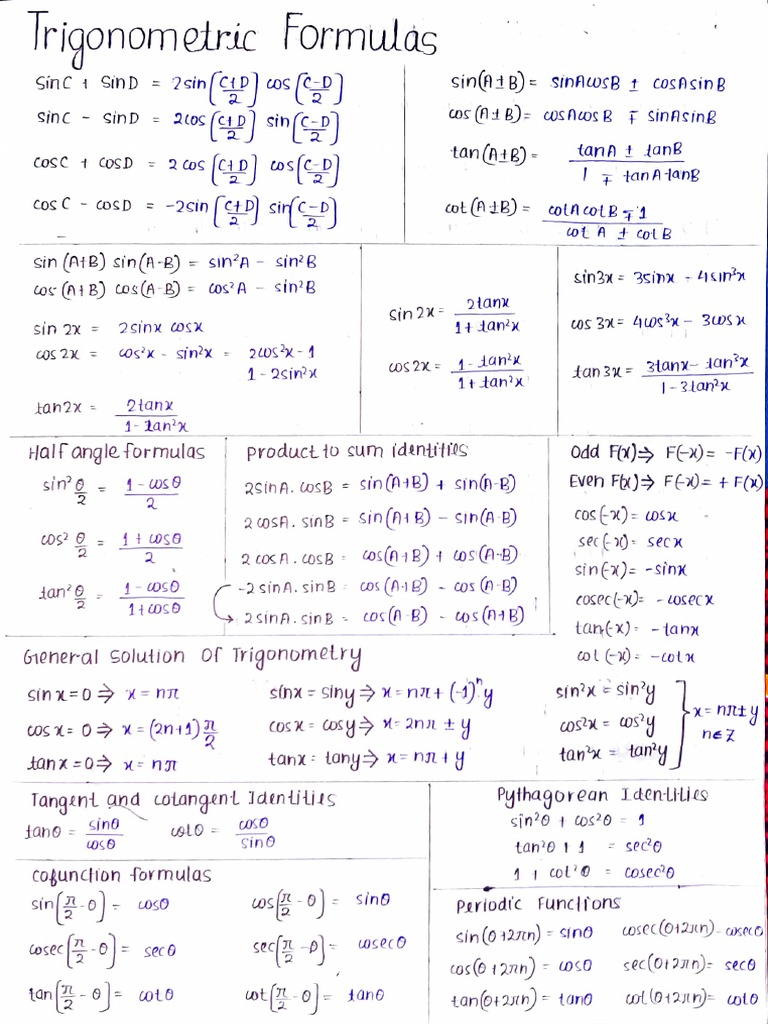 Trigonometric Formulas
sinC + sinD = 2sin[(C+D)/2] cos[(C-D)/2]
sinC - sinD = 2cos[(C+D)/2] sin[(C-D)/2]
cosC + cosD = 2cos[(C+D)/2] cos[(C-D)/2]
cosC - cosD = -2sin[(C+D)/2] sin[(C-D)/2]
sin(A±B) = sinAcosB ± cosAsinB
cos(A±B) = cosAcosB ∓ sinAsinB
tan(A±B) = (tanA ± tanB)/(1 ∓ tanAtanB)
cot(A±B) = (cotAcotB ∓ 1)/(cotA ± cotB)
sin(A+B) sin(A-B) = sin²A - sin²B
cos(A+B) cos(A-B) = cos²A - sin²B
sin 2x = 2sinx cosx
cos2x = cos²x - sin²x = 2cos²x - 1
1 - 2sin²x
tan2x = 2tanx/(1-tan²x)
sin2x = 2tanx/(1+tan²x)
cos2x = (1-tan²x)/(1+tan²x)
sin3x = 3sinx - 4sin³x
cos3x = 4cos³x - 3cosx
tan3x = (3tanx - tan³x)/(1-3tan²x)
Half angle formulas
sin² θ/2 = (1-cosθ)/2
cos² θ/2 = (1+cosθ)/2
tan² θ/2 = (1-cosθ)/(1+cosθ)
Product to sum identities
2sinA.cosB = sin(A+B) + sin(A-B)
2cosA.sinB = sin(A+B) - sin(A-B)
2cosA.cosB = cos(A+B) + cos(A-B)
-2sinA.sinB = cos(A+B) - cos(A-B)
2sinA.sinB = cos(A-B) - cos(A+B)
Odd F(x) ⇒ F(-x) = -F(x)
Even F(x) ⇒ F(-x) = +F(x)
cos(-x) = cosx
sec(-x) = secx
sin(-x) = -sinx
cosec(-x) = -cosecx
tan(-x) = -tanx
cot(-x) = -cotx
General Solution Of Trigonometry
sinx=0 ⇒ x = nπ
cosx = 0 ⇒ x = (2n+1)π/2
tanx=0 ⇒ x = nπ
sinx = siny ⇒ x = nπ + (-1)ⁿy
cosx = cosy ⇒ x = 2nπ ± y
tanx = tany ⇒ x = nπ + y
sin²x = sin²y
cos²x = cos²y
tan²x = tan²y
x = nπ ± y
n∈Z
Tangent and cotangent Identities
tanθ = sinθ/cosθ cotθ = cosθ/sinθ
Pythagorean Identities
sin²θ + cos²θ = 1
tan²θ + 1 = sec²θ
1 + cot²θ = cosec²θ
Cofunction formulas
sin[π/2 - θ] = cosθ cos[π/2 - θ] = sinθ
cosec[π/2 - θ] = secθ sec[π/2 - θ] = cosecθ
tan[π/2 - θ] = cotθ cot[π/2 - θ] = tanθ
Periodic Functions
sin(θ+2πn) = sinθ cosec(θ+2πn) = cosecθ
cos(θ+2πn) = cosθ sec(θ+2πn) = secθ
tan(θ+2πn) = tanθ cot(θ+2πn) = cotθ